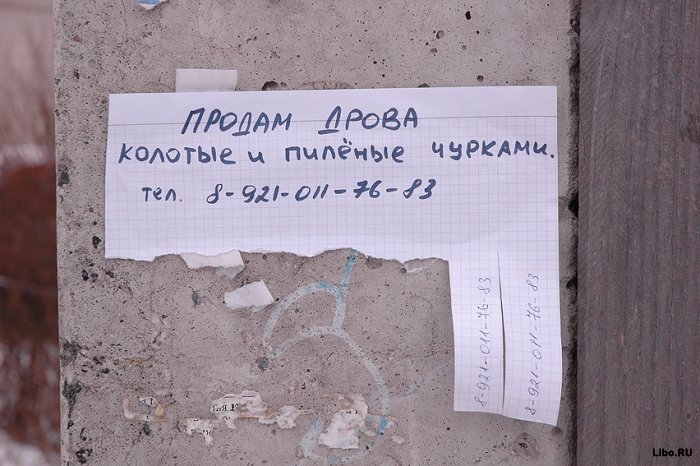 ПРОДАМ ДРОВА
КОЛОТЫЕ И ПИЛЁНЫЕ ЧУРКАМИ.
тел. 8-921-011-76-83
8-921-011-76-83
8-921-011-76-83
Libo.RU